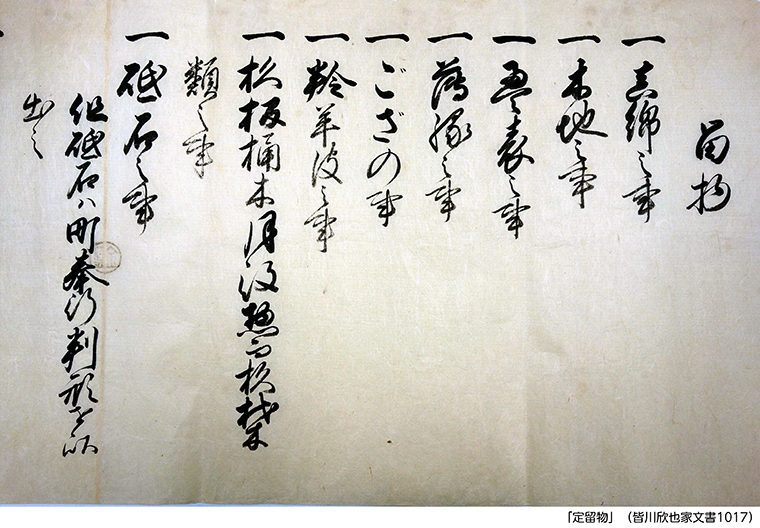 留物
一 真綿之事
一 木地之事
一 畳表之事
一 薄縁之事
一 ござの事
一 羚羊皮之事
一 杉板桶木惣而杉材木
類之事
一 砥石之事
但砥石ハ町奉行判形を以
出之
「定留物」（皆川欣也家文書1017）